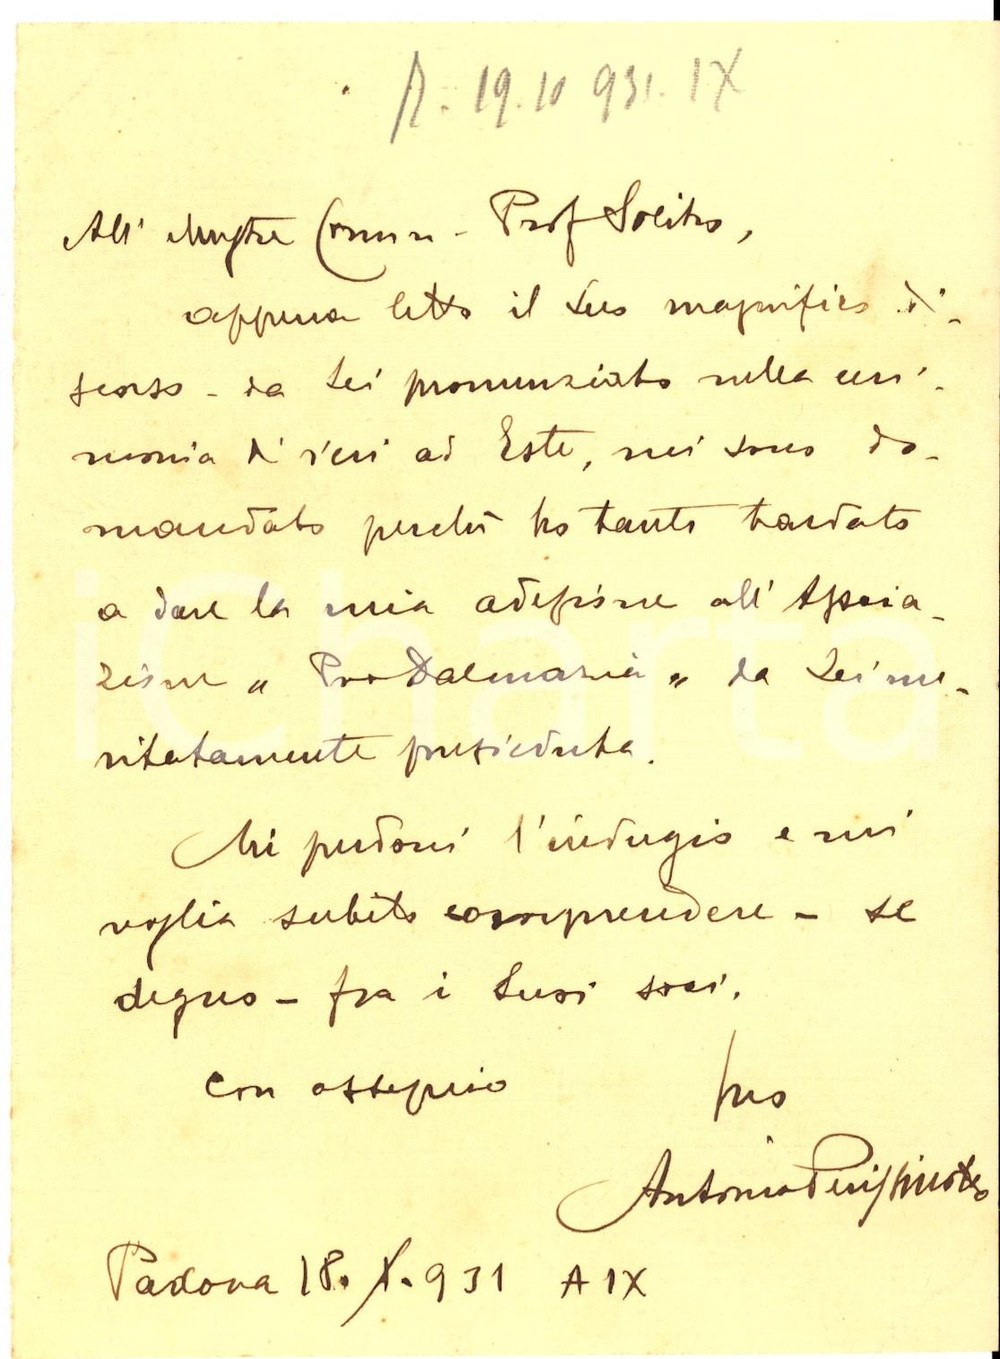 R. 19.10 931. IX
All' Illustre Comm. Prof Solitro,
appena letto il Suo magnifico di-
scorso - da Lei pronunziato nella ceri-
monia di ieri ad Este, mi sono do-
mandato perchè ho tanto tardato
a dare la mia adesione all' Associa-
zione " Pro Dalmazia " da Lei me-
ritatamente presieduta.
Mi perdoni l'indugio e mi
voglia subito comprendere - se
degno - fra i Suoi soci.
con ossequio Suo
Antonio Perissinotto
Padova 18. X. 931 A IX
iCharta